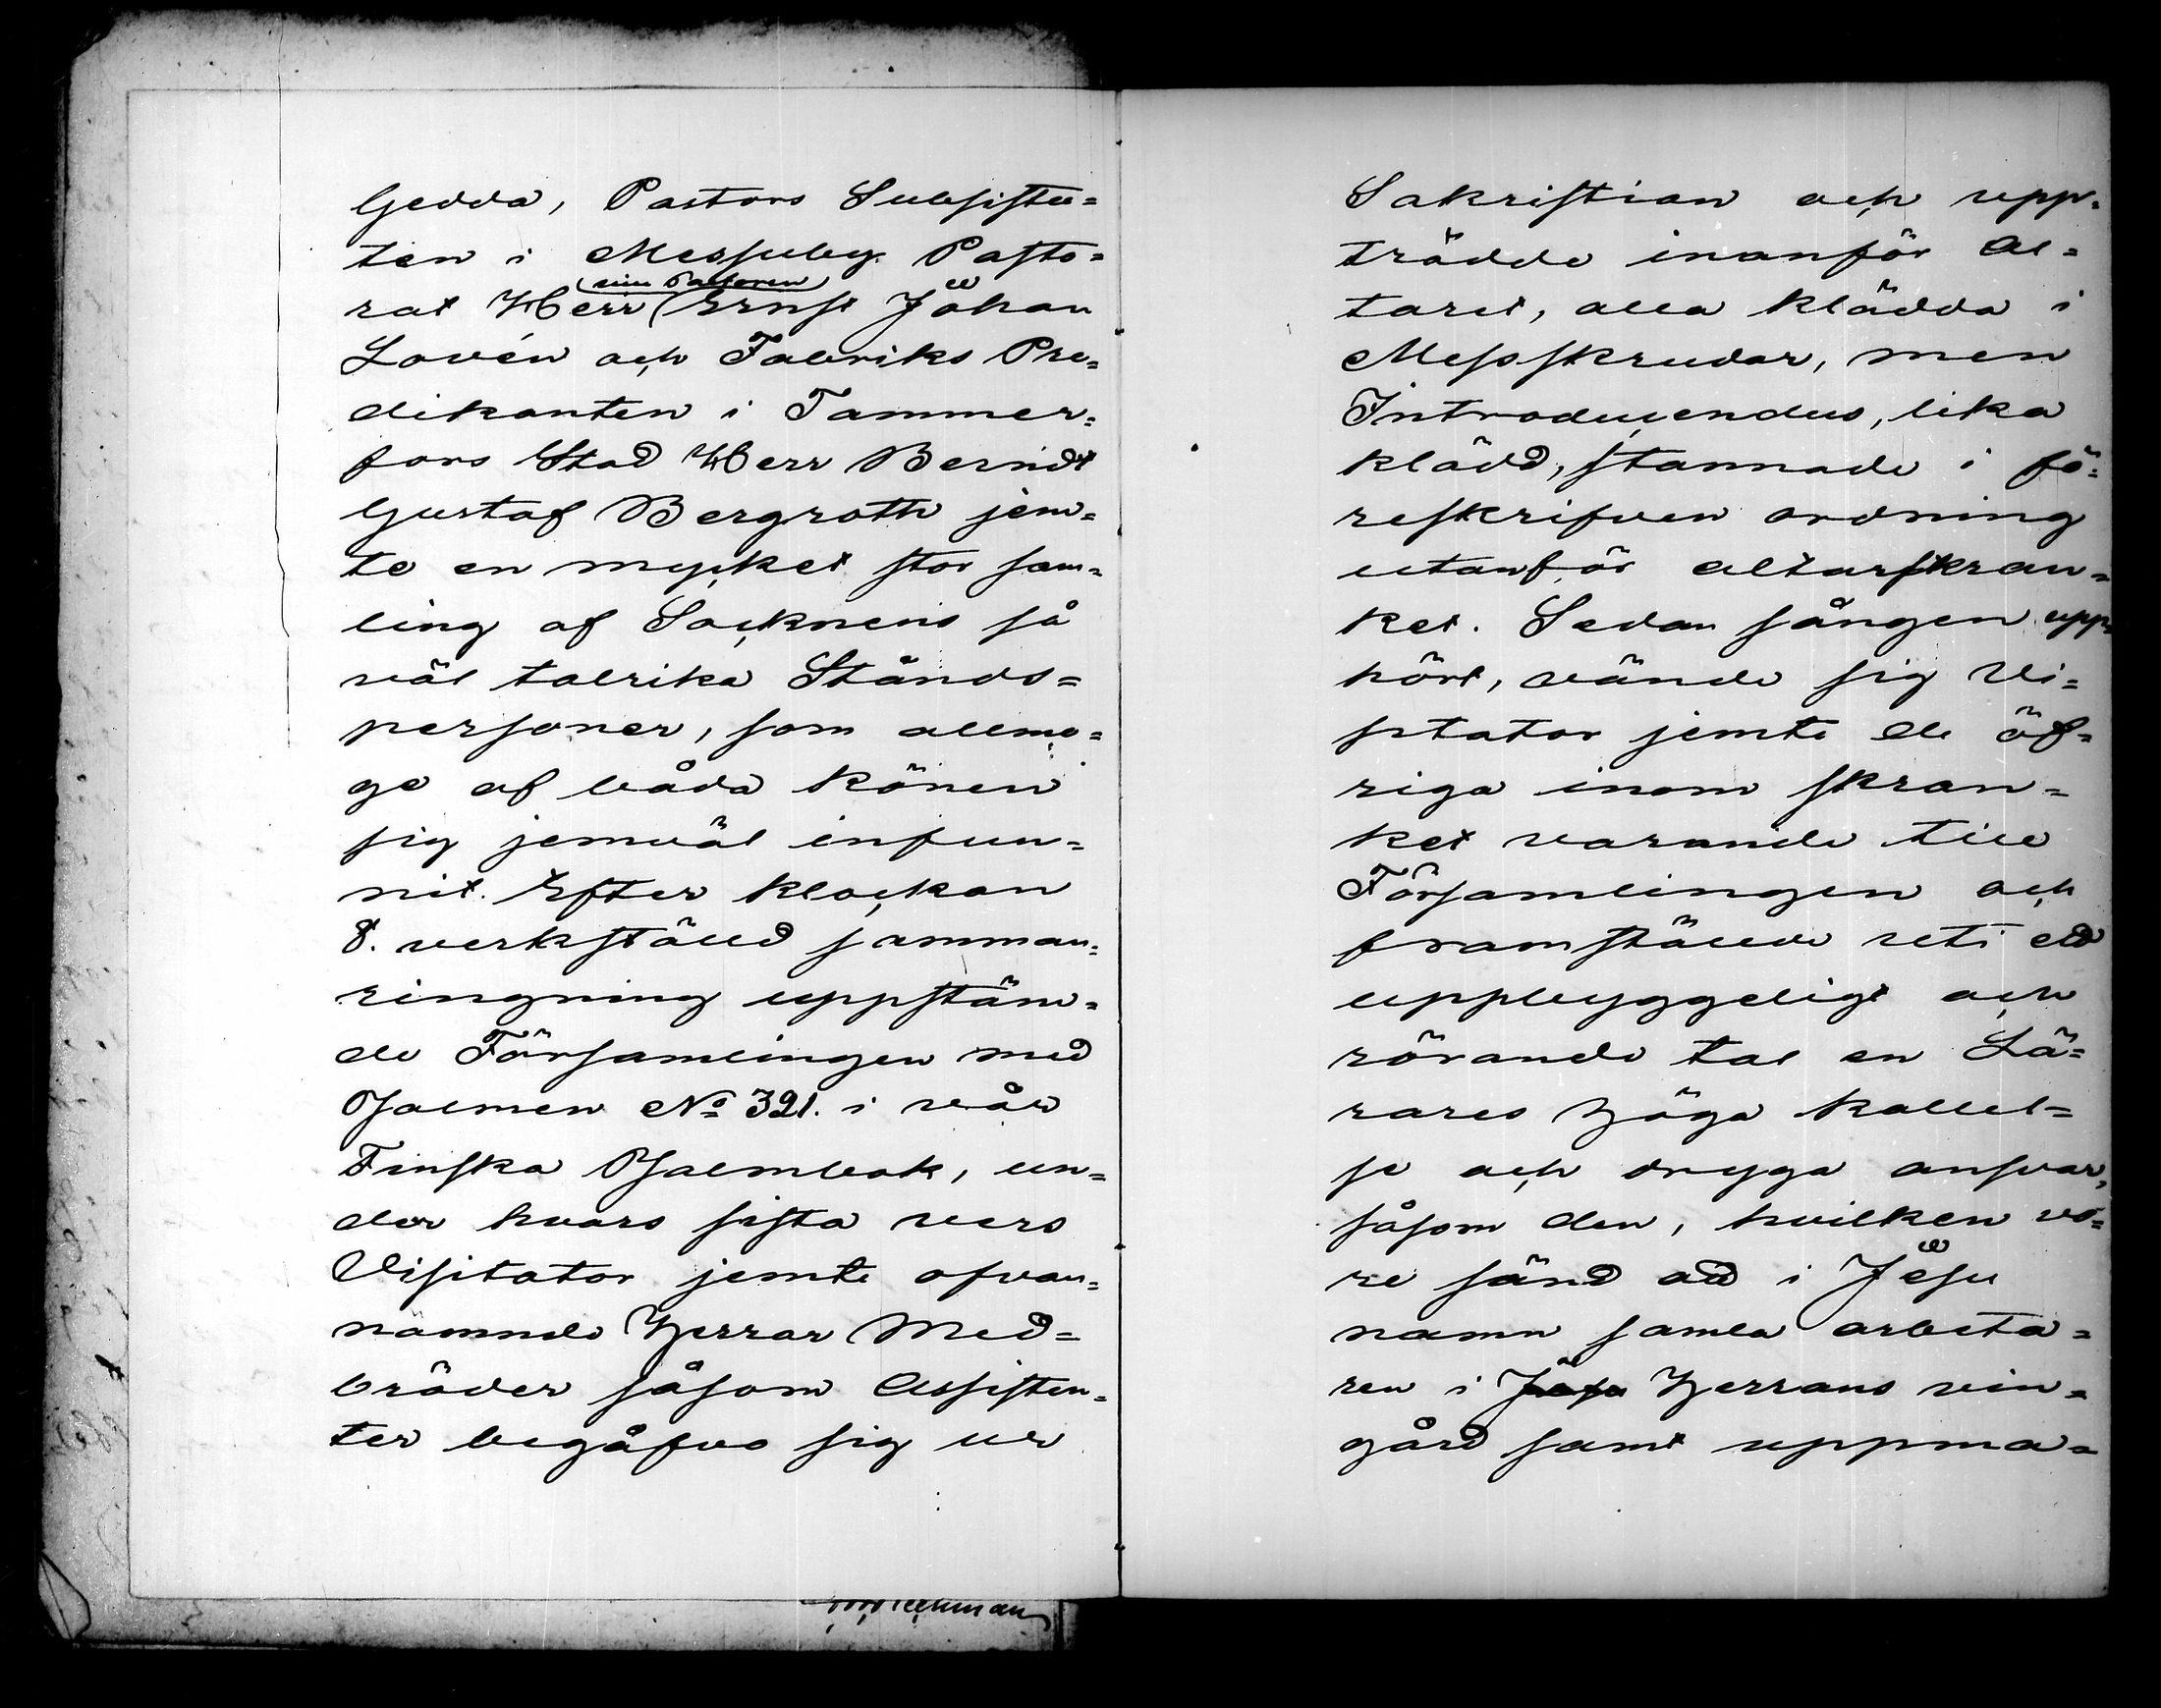 Gedda, Pastors Subsistu=
ten i Messuby Pasto=
rat Herr (vice Pastoren) Ernst Johan
Lovén och Fabriks Pre=
dikanten i Tammer=
fors Stad Herr Berndt
Gustaf Bergroth jem=
te en mycket stor sam=
ling af Socknens så
väl talrika Stånds=
personer, som allmo=
ge af båda könen
sig jemväl infun=
nit. Efter klockan
8. verkstäld samman=
ringning uppstäm=
de Församlingen med
Psalmen No 321. i vår
Finska Psalmbok, un=
der hvars sista vers
Visitator jemte ofvan=
nämnde Herrar Med=
bröder såsom Assisten=
ter begåfvo sig ur
Sakristian och upp=
trädde inanför Al=
taret, alla klädda i
Messskrudar, men
Introducendus, lika
klädd, stannade i fö=
reskrifven ordning
utanför altarskran=
ket. Sedan sången upp=
hört, vände sig Vi=
sitator jemte de öf=
riga inom skran=
ket varande till
Församlingen och
framstälde uti ett
uppbyggeligt och
rörande tal en Lä=
rares höga kallel=
se och dryga ansvar,
såsom den, hvilken vo=
re sänd att i Jesu
namn samla arbeta=
ren i Jesu Herrans vin=
gård samt uppma=